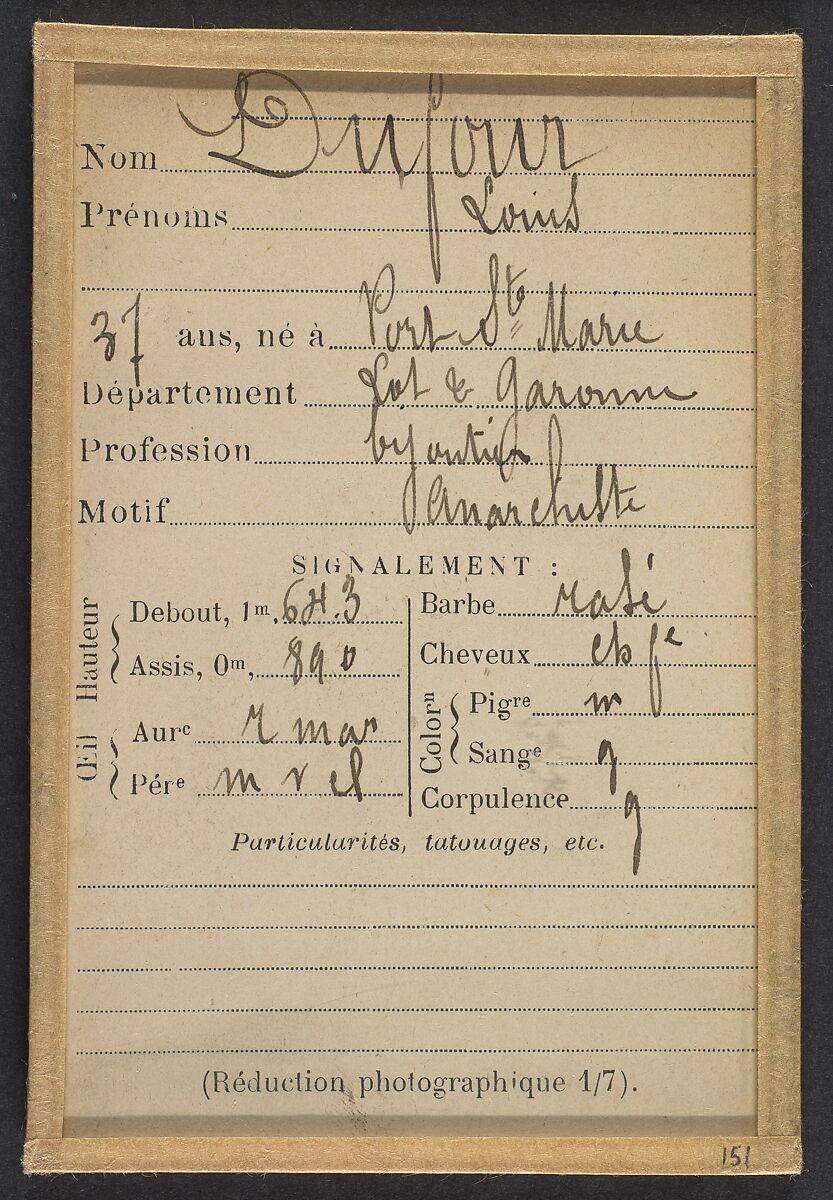 Nom Dufour
Prénoms Louis
37 ans, né à Port Ste Marie
Département Lot & Garonne
Profession bijoutier
Motif Anarchiste
SIGNALEMENT :
Hauteur
Debout, 1m, 64.3
Assis, 0m, 89 0
Œil
Aure r mar
Pére m v cl
Barbe rasé
Cheveux ch fe
Colorn
Pigre m
Sange g
Corpulence g
Particularités, tatouages, etc.
(Réduction photographique 1/7).
151